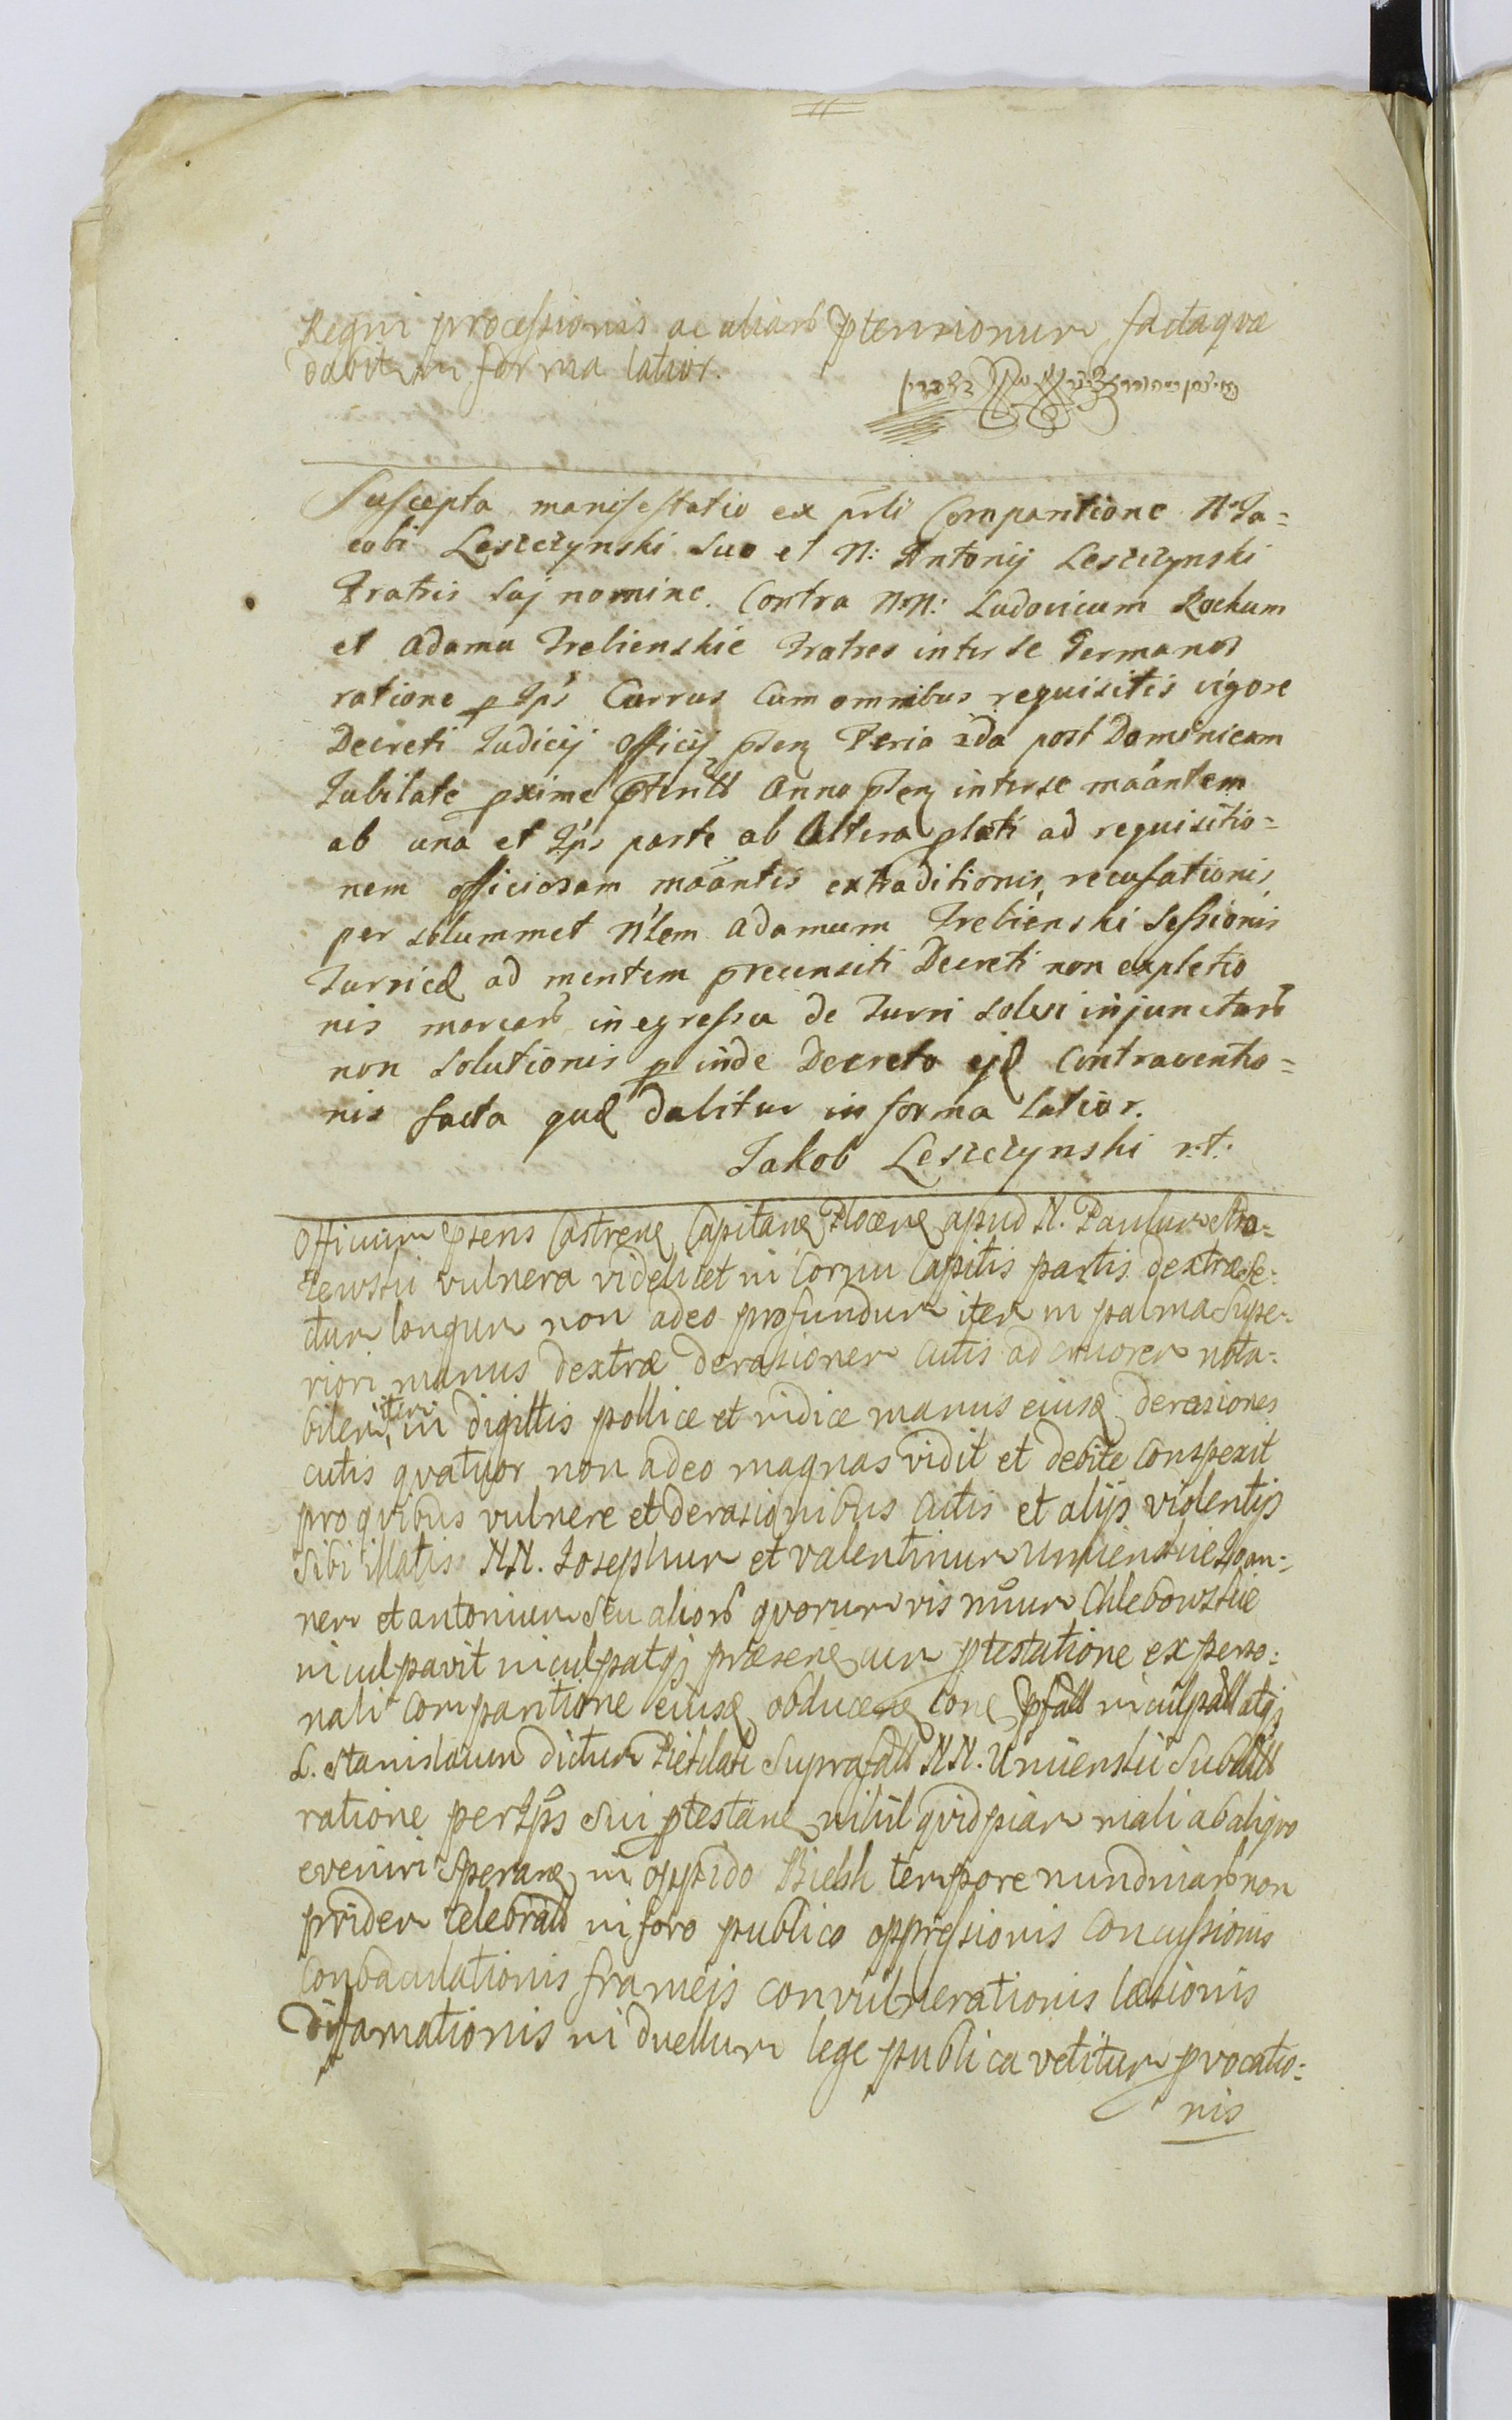 Regni processionis ac aliarū ptensionum facta quæ
dabitur in forma latior.
Suscepta manifestatio ex prsli Comparitione N: Ja=
cobi Leszczynski Suo et N: Antonij Leszczynski
Fratris Suj nomine. Contra NN: Ludovicum Rochum
et Adamu Trebienskie Fratres inter se Germanos
ratione p Ips Currus Cum omnibus requisitis vigore
Decreti Judicij Officij pten Feria 2da post Dominicam
Jubilate pxime Anno pten inter se maantem
ab una et Ips parte ab Altera plati ad requisitio=
nem officiosam maantis extraditionis, recusationis,
per solummet N'lem Adamum Trebienski Sessionis
Turrice ad mentem precensiti Decreti non expletio
nis marcarū in egressu de Turri solvi injunctarū
non solutionis p inde Decreto ejd Contraventio=
nis facta que dabitur in forma latior.
Jakob Leszczynski r.t.
Officium ptens Castrene Capitane Plocene apud N. Paulum
vulnera videlicet in Cornu Capitis partis dextræ se=
ctum longum non adeo profundum item in palma Supe=
riori manus dextræ derasionem Cutis ad cruorem nota=
bilem, item in digittis pollice et indice manus eiusd derasiones
cutis qvatuor non adeo magnas vidit et debite Conspexit
pro qvibus vulnere et derasionibus Cutis et alijs violentijs
Sibi illatis NN. Josephum et Valentinum Umienskie Joan=
nem et Antonium Seu aliorū qvorumvis nūum Chlebowskie
inculpavit inculpatqj præsene cum ptestatione ex perso=
nali Comparitione eiusd obducene Cone inculpatt atqj
L. Stanislaum dictum Supra NN. Umienskii Subditt
ratione per Ips Sui ptestane nihil qvidpiam mali ab aliqvo
eveniri Sperane in oppido Bielsk tempore nundinarū non
pridem Celebratt in foro publico oppressionis Concussionis
Conbaculationis frameis convulnerationis læsionis
difamationis in duellum lege publica vetitum pvocatio=
nis